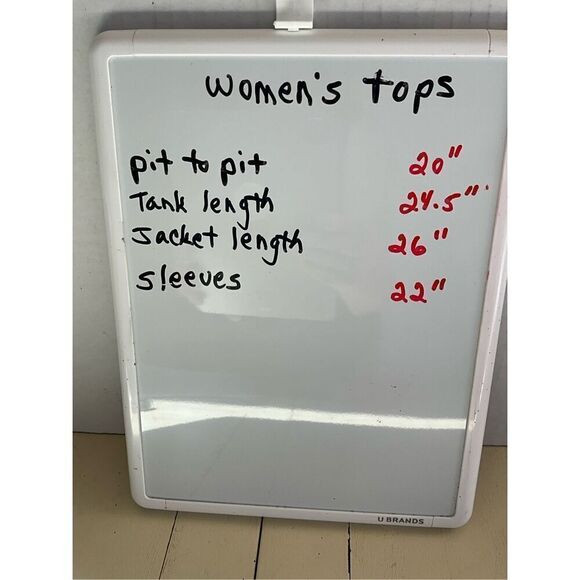 women's tops
pit to pit 20"
Tank length 24.5"
Jacket length 26"
sleeves 22"
U BRANDS